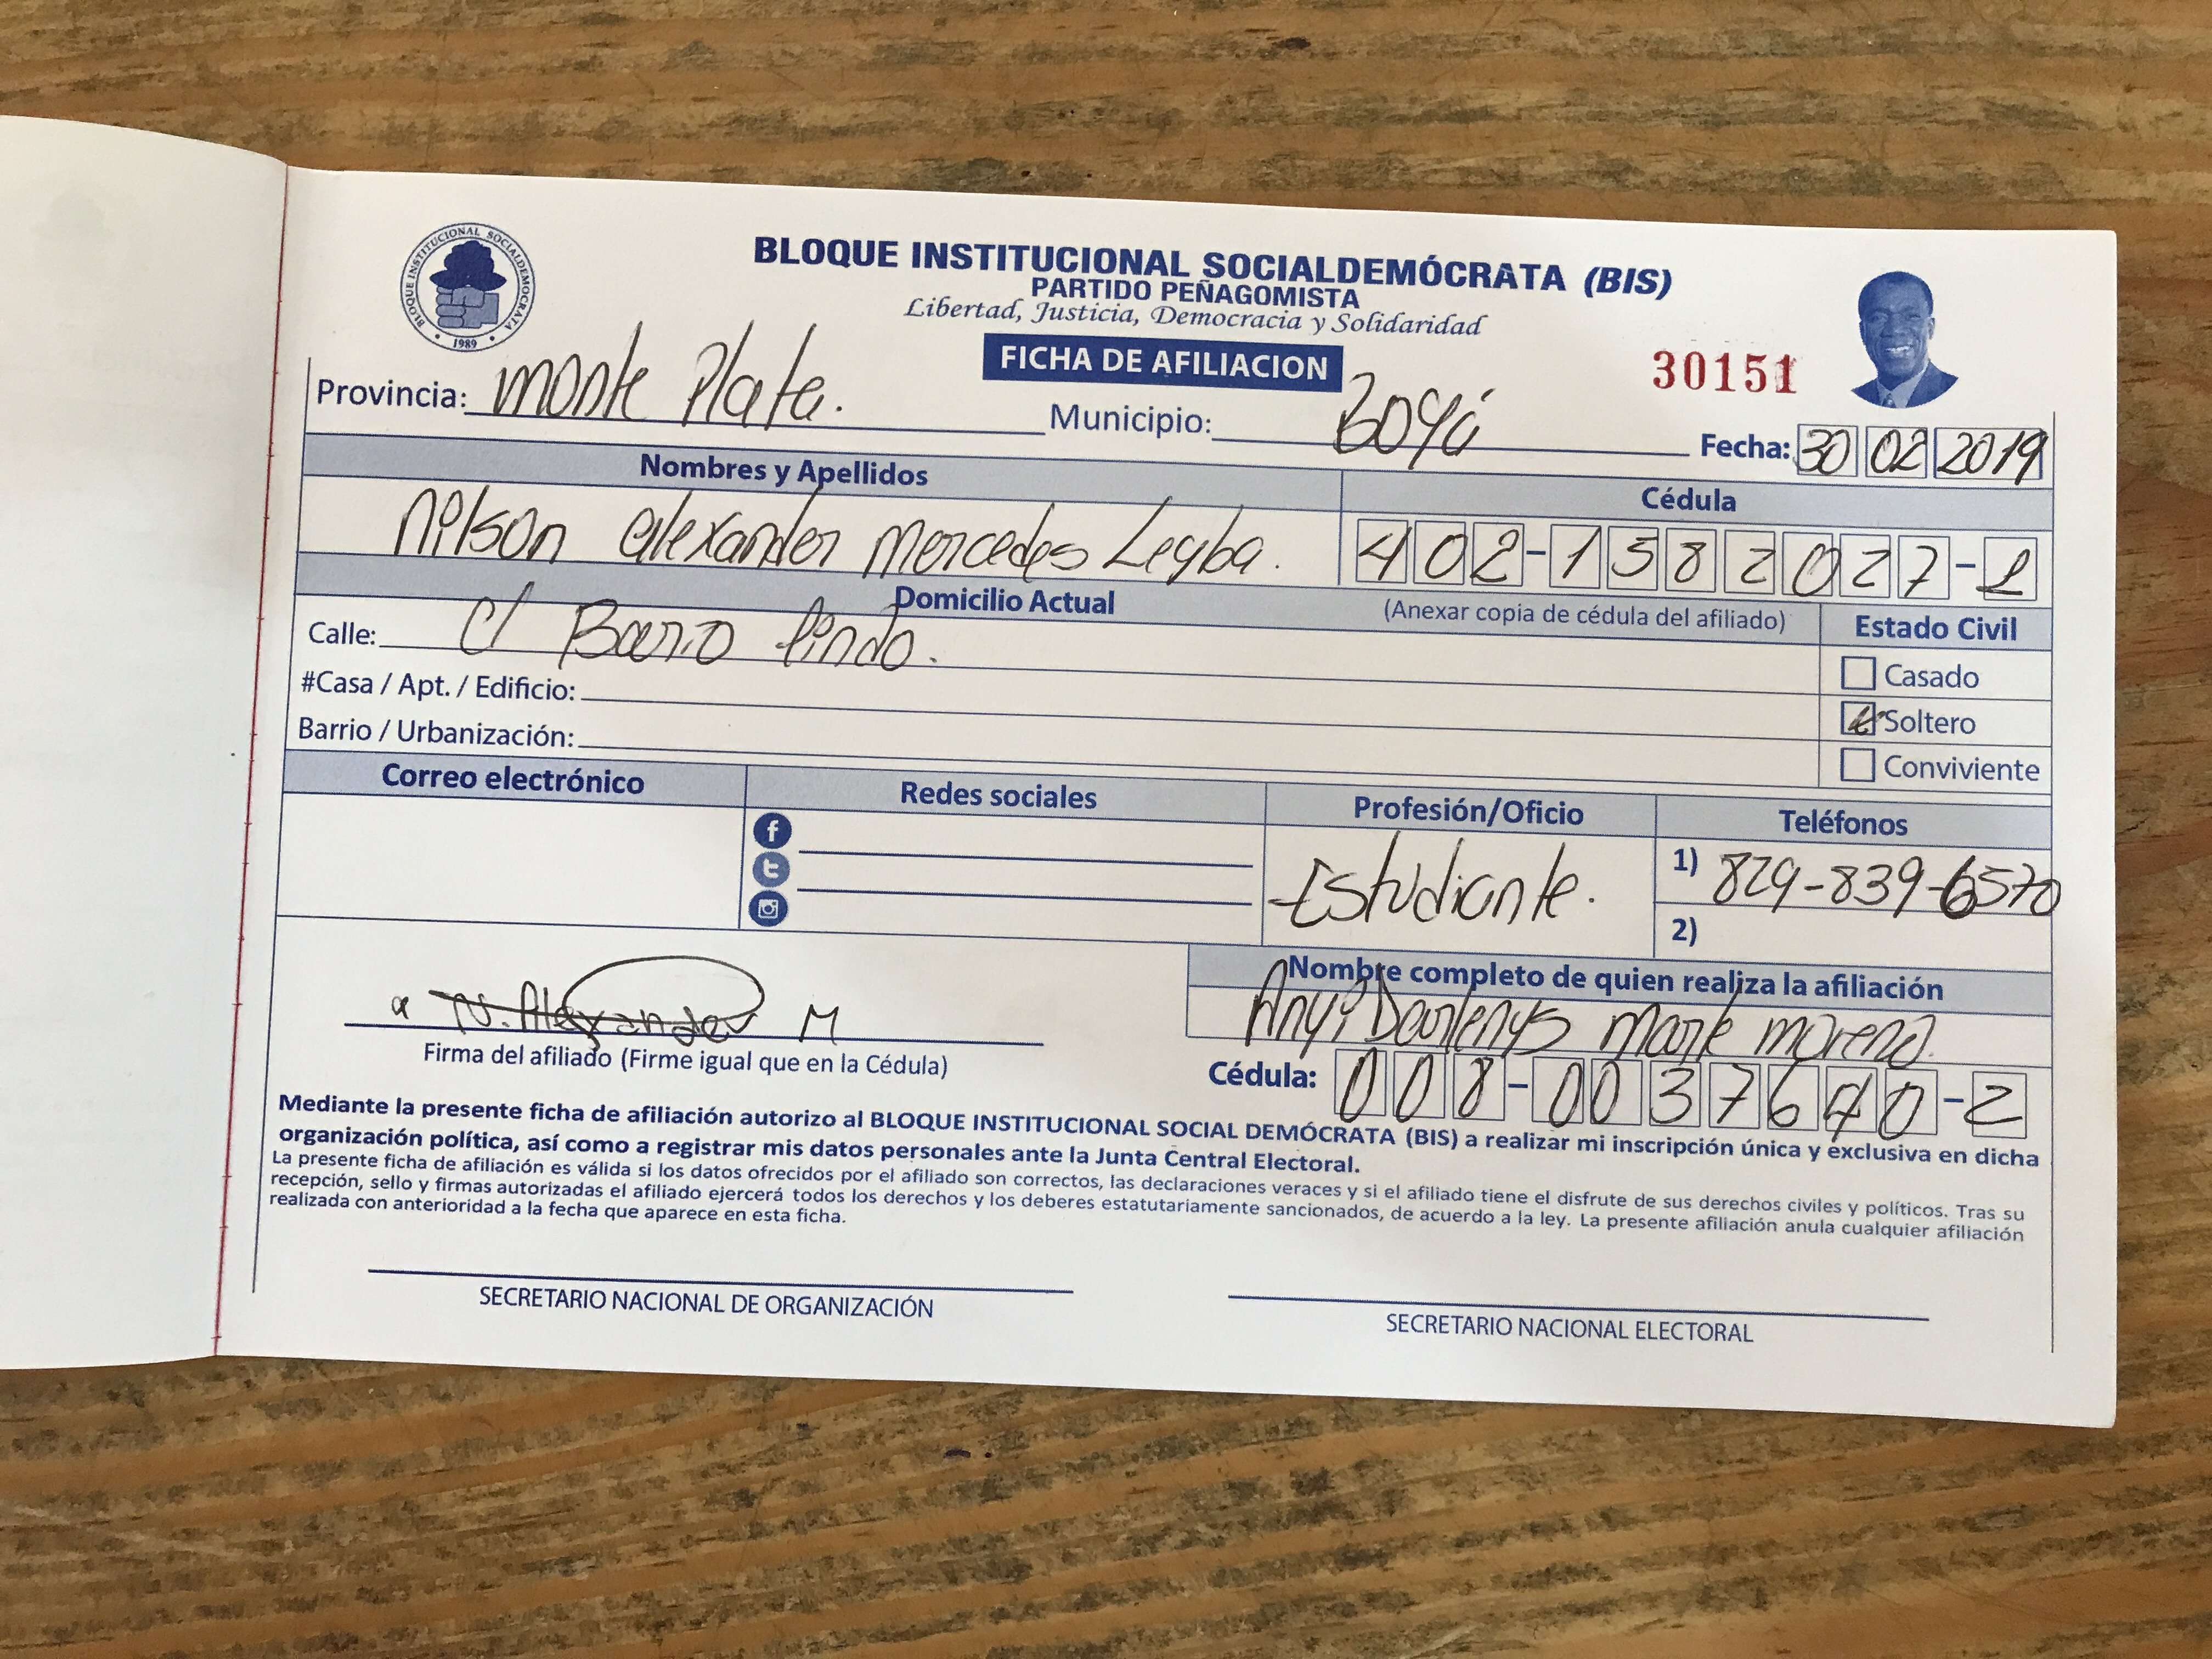 BLOQUE INSTITUCIONAL SOCIALDEMOCRATA
1989
BLOQUE INSTITUCIONAL SOCIALDEMÓCRATA (BIS)
PARTIDO PEÑAGOMISTA
Libertad, Justicia, Democracia y Solidaridad
FICHA DE AFILIACION
30151
Provincia: Monte Plata. Municipio: Boyá Fecha: 30 02 2019
Nombres y Apellidos Cédula
Nilson alexander mercedes Leyba. 402-1582027-1
Domicilio Actual (Anexar copia de cédula del afiliado) Estado Civil
Calle: C/ Barrio lindo.
Casado
#Casa / Apt. / Edificio:
Soltero
Barrio / Urbanización:
Conviviente
Correo electrónico Redes sociales Profesión/Oficio Teléfonos
Estudiante. 1) 829-839-6570
2)
Nombre completo de quien realiza la afiliación
a N. Alexander M Anyi Darlenys Marte moreno.
Firma del afiliado (Firme igual que en la Cédula) Cédula: 008-0037640-2
Mediante la presente ficha de afiliación autorizo al BLOQUE INSTITUCIONAL SOCIAL DEMÓCRATA (BIS) a realizar mi inscripción única y exclusiva en dicha
organización política, así como a registrar mis datos personales ante la Junta Central Electoral.
La presente ficha de afiliación es válida si los datos ofrecidos por el afiliado son correctos, las declaraciones veraces y si el afiliado tiene el disfrute de sus derechos civiles y políticos. Tras su
recepción, sello y firmas autorizadas el afiliado ejercerá todos los derechos y los deberes estatutariamente sancionados, de acuerdo a la ley. La presente afiliación anula cualquier afiliación
realizada con anterioridad a la fecha que aparece en esta ficha.
SECRETARIO NACIONAL DE ORGANIZACIÓN SECRETARIO NACIONAL ELECTORAL